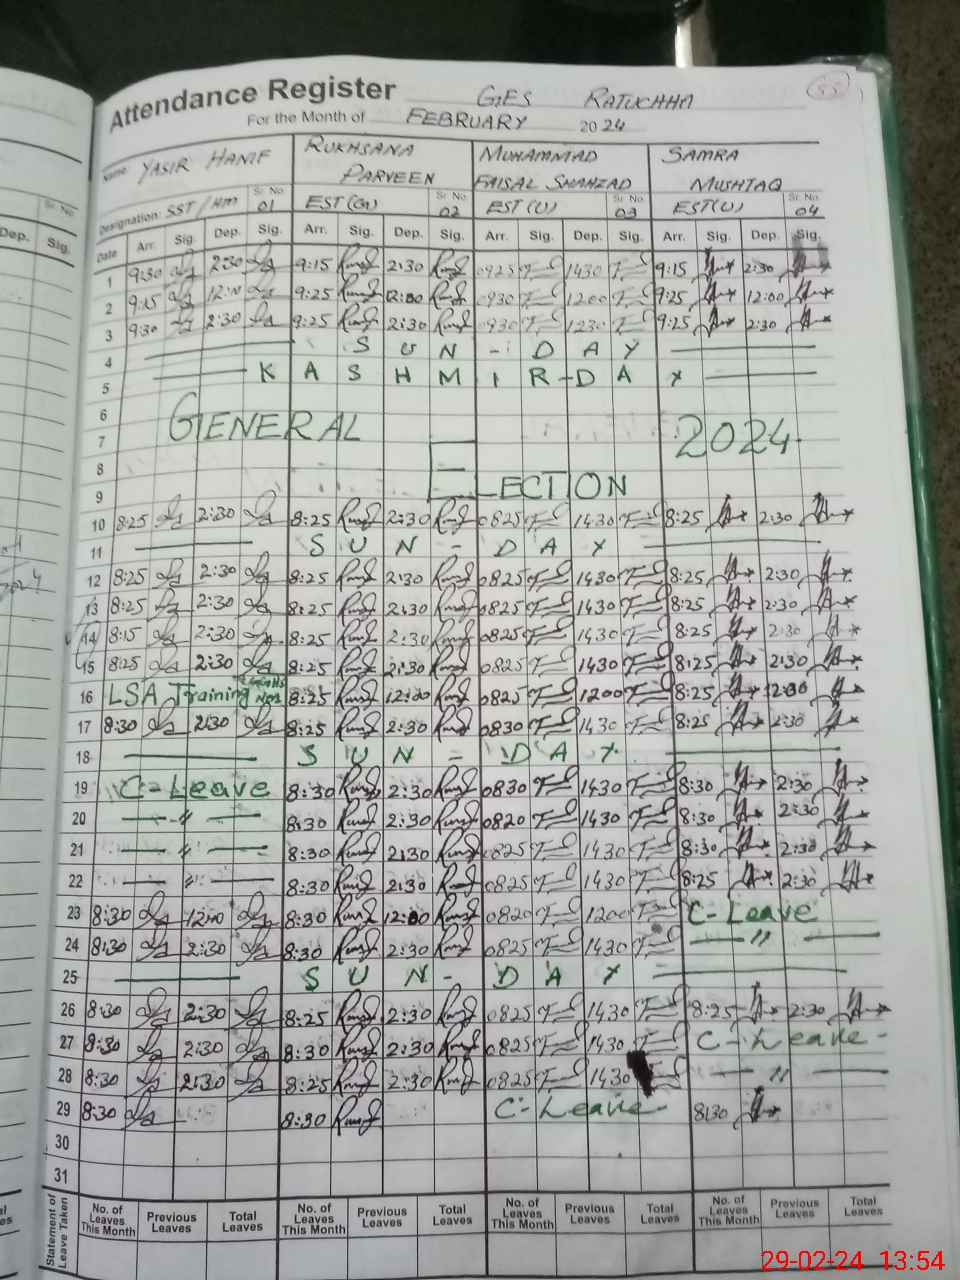 Attendance Register GES RATUCHHA 55
For the Month of FEBRUARY 2024
Name: YASIR HANIF RUKHSANA PARVEEN MUHAMMAD FAISAL SHAHZAD SAMRA MUSHTAQ
Designation: SST/HM Sr. No. 01 EST(G) Sr. No. 02 EST(U) Sr. No. 03 EST(U) Sr. No. 04
Date Arr. Sig. Dep. Sig. Arr. Sig. Dep. Sig. Arr. Sig. Dep. Sig. Arr. Sig. Dep. Sig.
1 9:30 2:30 9:15 2:30 0925 1430 9:15 2:30
2 9:15 9:25 12:00 0930 1200 9:25 12:00
3 9:30 2:30 9:25 2:30 0930 1230 9:25 2:30
4 SUN - DAY
5 KASHMIR-DAY
6
7 GENERAL 2024
8
9 ELECTION
10 8:25 2:30 8:25 2:30 0825 1430 8:25 2:30
11 SUN - DAY
12 8:25 2:30 8:25 2:30 0825 1430 8:25 2:30
13 8:25 2:30 8:25 2:30 0825 1430 8:25 2:30
14 8:15 2:30 8:25 2:30 0825 1430 8:25 2:30
15 8:25 2:30 8:25 2:30 0825 1430 8:25 2:30
16 LSA Training 8:25 12:00 0825 1200 8:25 12:00
17 8:30 2:30 8:25 2:30 0830 1430 8:25 2:30
18 SUN - DAY
19 C-Leave 8:30 2:30 0830 1430 8:30 2:30
20 — " — 8:30 2:30 0820 1430 8:30 2:30
21 — " — 8:30 2:30 0825 1430 8:30 2:30
22 — " — 8:30 2:30 0825 1430 8:25 2:30
23 8:30 12:00 8:30 12:00 0820 1200 C-Leave
24 8:30 2:30 8:30 2:30 0825 1430 — " —
25 SUN - DAY
26 8:30 2:30 8:25 2:30 0825 1430 8:25 2:30
27 8:30 2:30 8:30 2:30 0825 1430 C-Leave-
28 8:30 2:30 8:25 2:30 0825 1430 — " —
29 8:30 8:30 C-Leave 8:30
30
31
Statement of Leave Taken No. of Leaves This Month Previous Leaves Total Leaves No. of Leaves This Month Previous Leaves Total Leaves No. of Leaves This Month Previous Leaves Total Leaves No. of Leaves This Month Previous Leaves Total Leaves
29-02-24 13:54